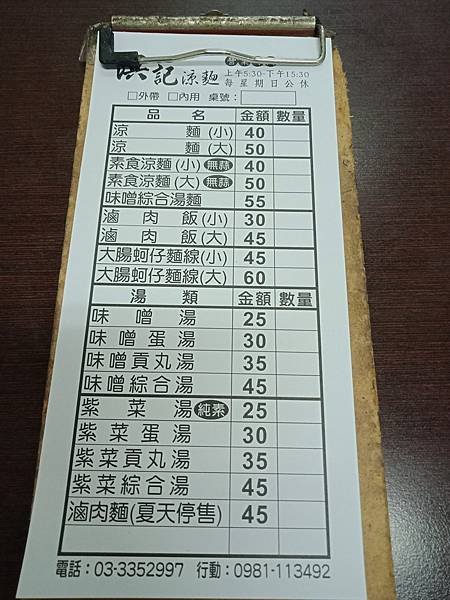 記涼麵 上午5:30-下午15:30
每星期日公休
□外帶 □內用 桌號：
品名 金額 數量
涼麵(小) 40
涼麵(大) 50
素食涼麵(小) 無蒜 40
素食涼麵(大) 無蒜 50
味噌綜合湯麵 55
滷肉飯(小) 30
滷肉飯(大) 45
大腸蚵仔麵線(小) 45
大腸蚵仔麵線(大) 60
湯類 金額 數量
味噌湯 25
味噌蛋湯 30
味噌貢丸湯 35
味噌綜合湯 45
紫菜湯 純素 25
紫菜蛋湯 30
紫菜貢丸湯 35
紫菜綜合湯 45
滷肉麵(夏天停售) 45
電話：03-3352997 行動：0981-113492